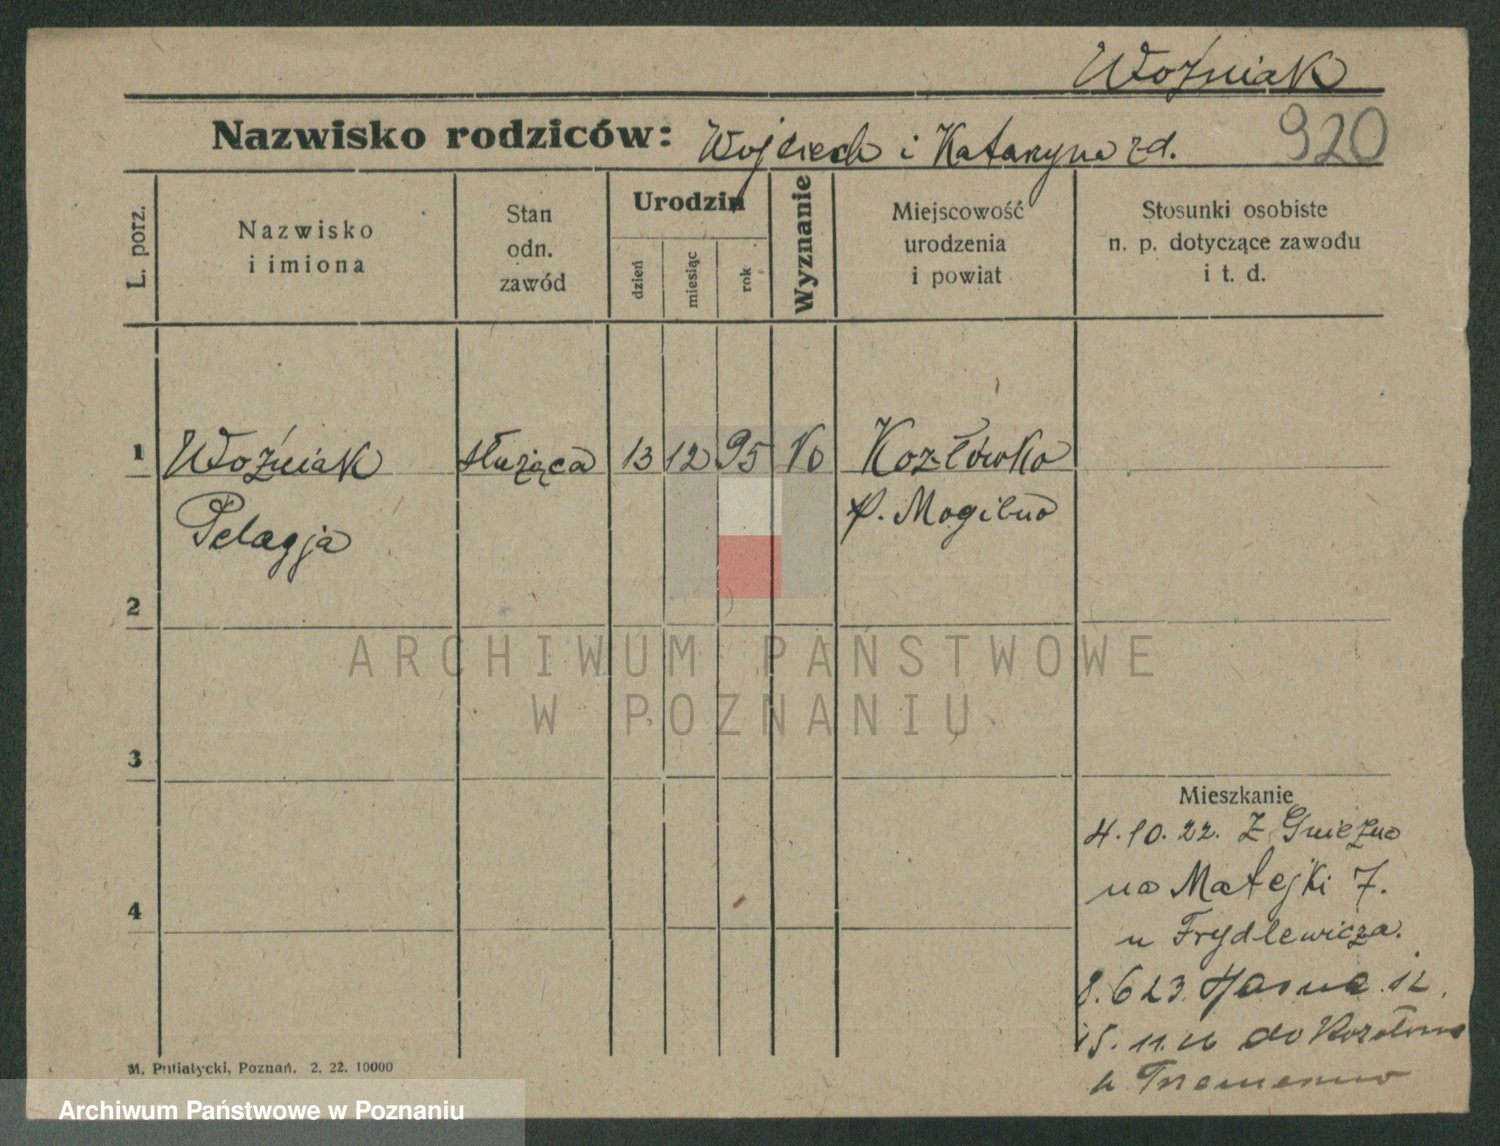 Woźniak
Nazwisko rodziców: Wojciech i Katarzyna zd. 920
L. porz.
Nazwisko
i imiona
Stan
odn.
zawód
Urodzin
dzień
miesiąc
rok
Wyznanie
Miejscowość
urodzenia
i powiat
Stosunki osobiste
n. p. dotyczące zawodu
i t. d.
1 Woźniak służąca 13 12 95 K Kozłówko
Pelagja p. Mogilno
2
ARCHIWUM PAŃSTWOWE
W POZNANIU
3
Mieszkanie
4. 10. 22. Z Gniezna
na Matejki 7.
4
u Frydlewicza.
8. 6 23. 12.
15. 11. 26 do
M. Putiatycki, Poznań. 2. 22. 10000
Archiwum Państwowe w Poznaniu